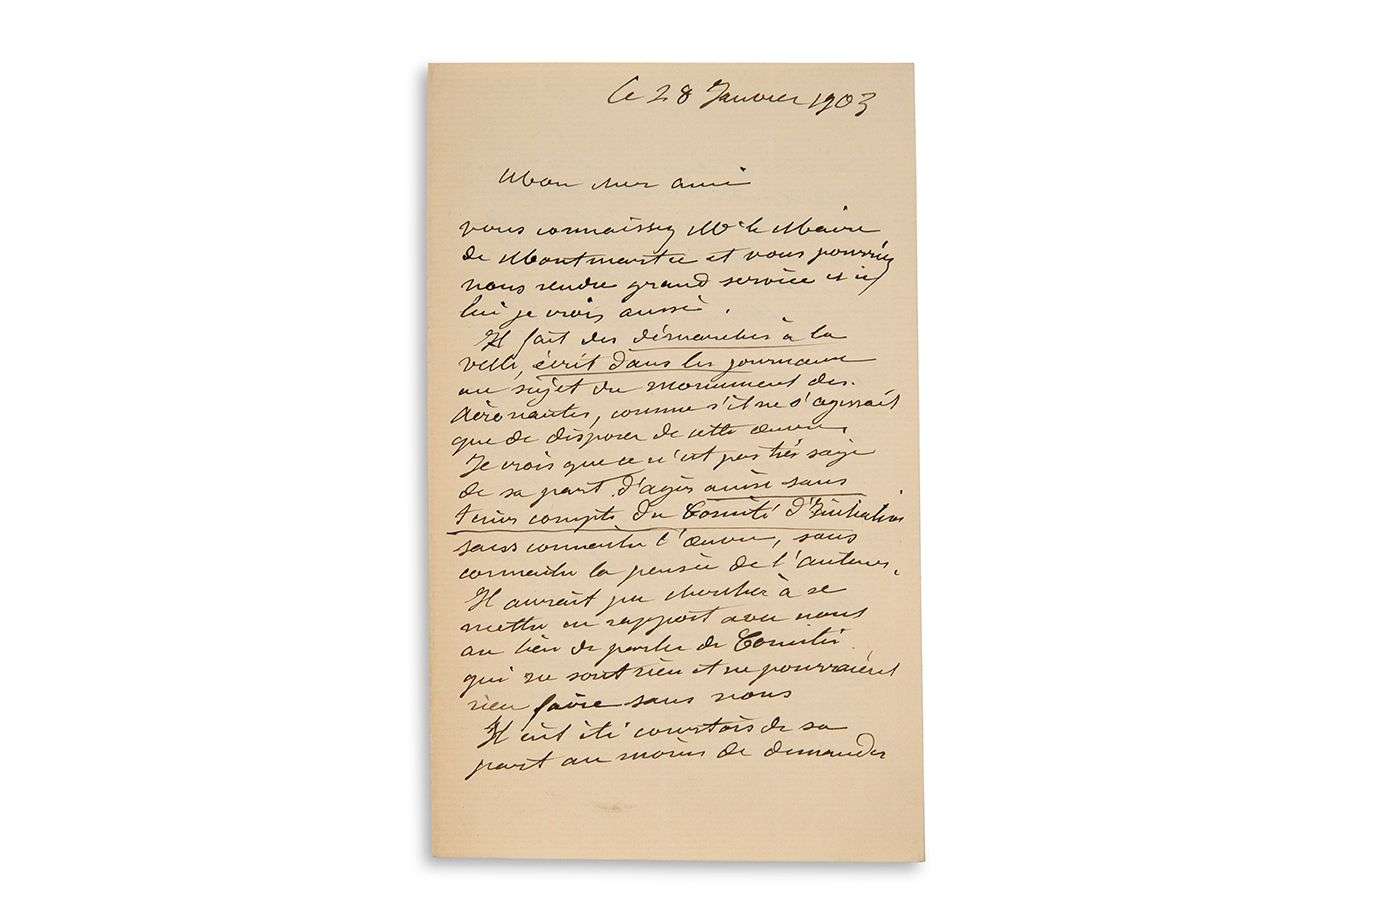 le 28 Janvier 1903
Mon cher ami
vous connaissez Mr le Maire
de Montmartre et vous pourriez
nous rendre grand service et à
lui je crois aussi.
Il fait des démarches à la
ville, écrit dans les journaux
au sujet du monument des
Aéronautes, comme s'il ne s'agissait
que de disposer de cette œuvre
Je crois que ce n'est pas très sage
de sa part d'agir ainsi sans
tenir compte du Comité d'Initiative
sans connaître l'œuvre, sans
connaître la pensée de l'auteur.
Il aurait pu chercher à se
mettre en rapport avec nous
au lieu de parler de Comités
qui ne sont rien et ne pourraient
rien faire sans nous
Il eût été courtois de sa
part au moins de demander